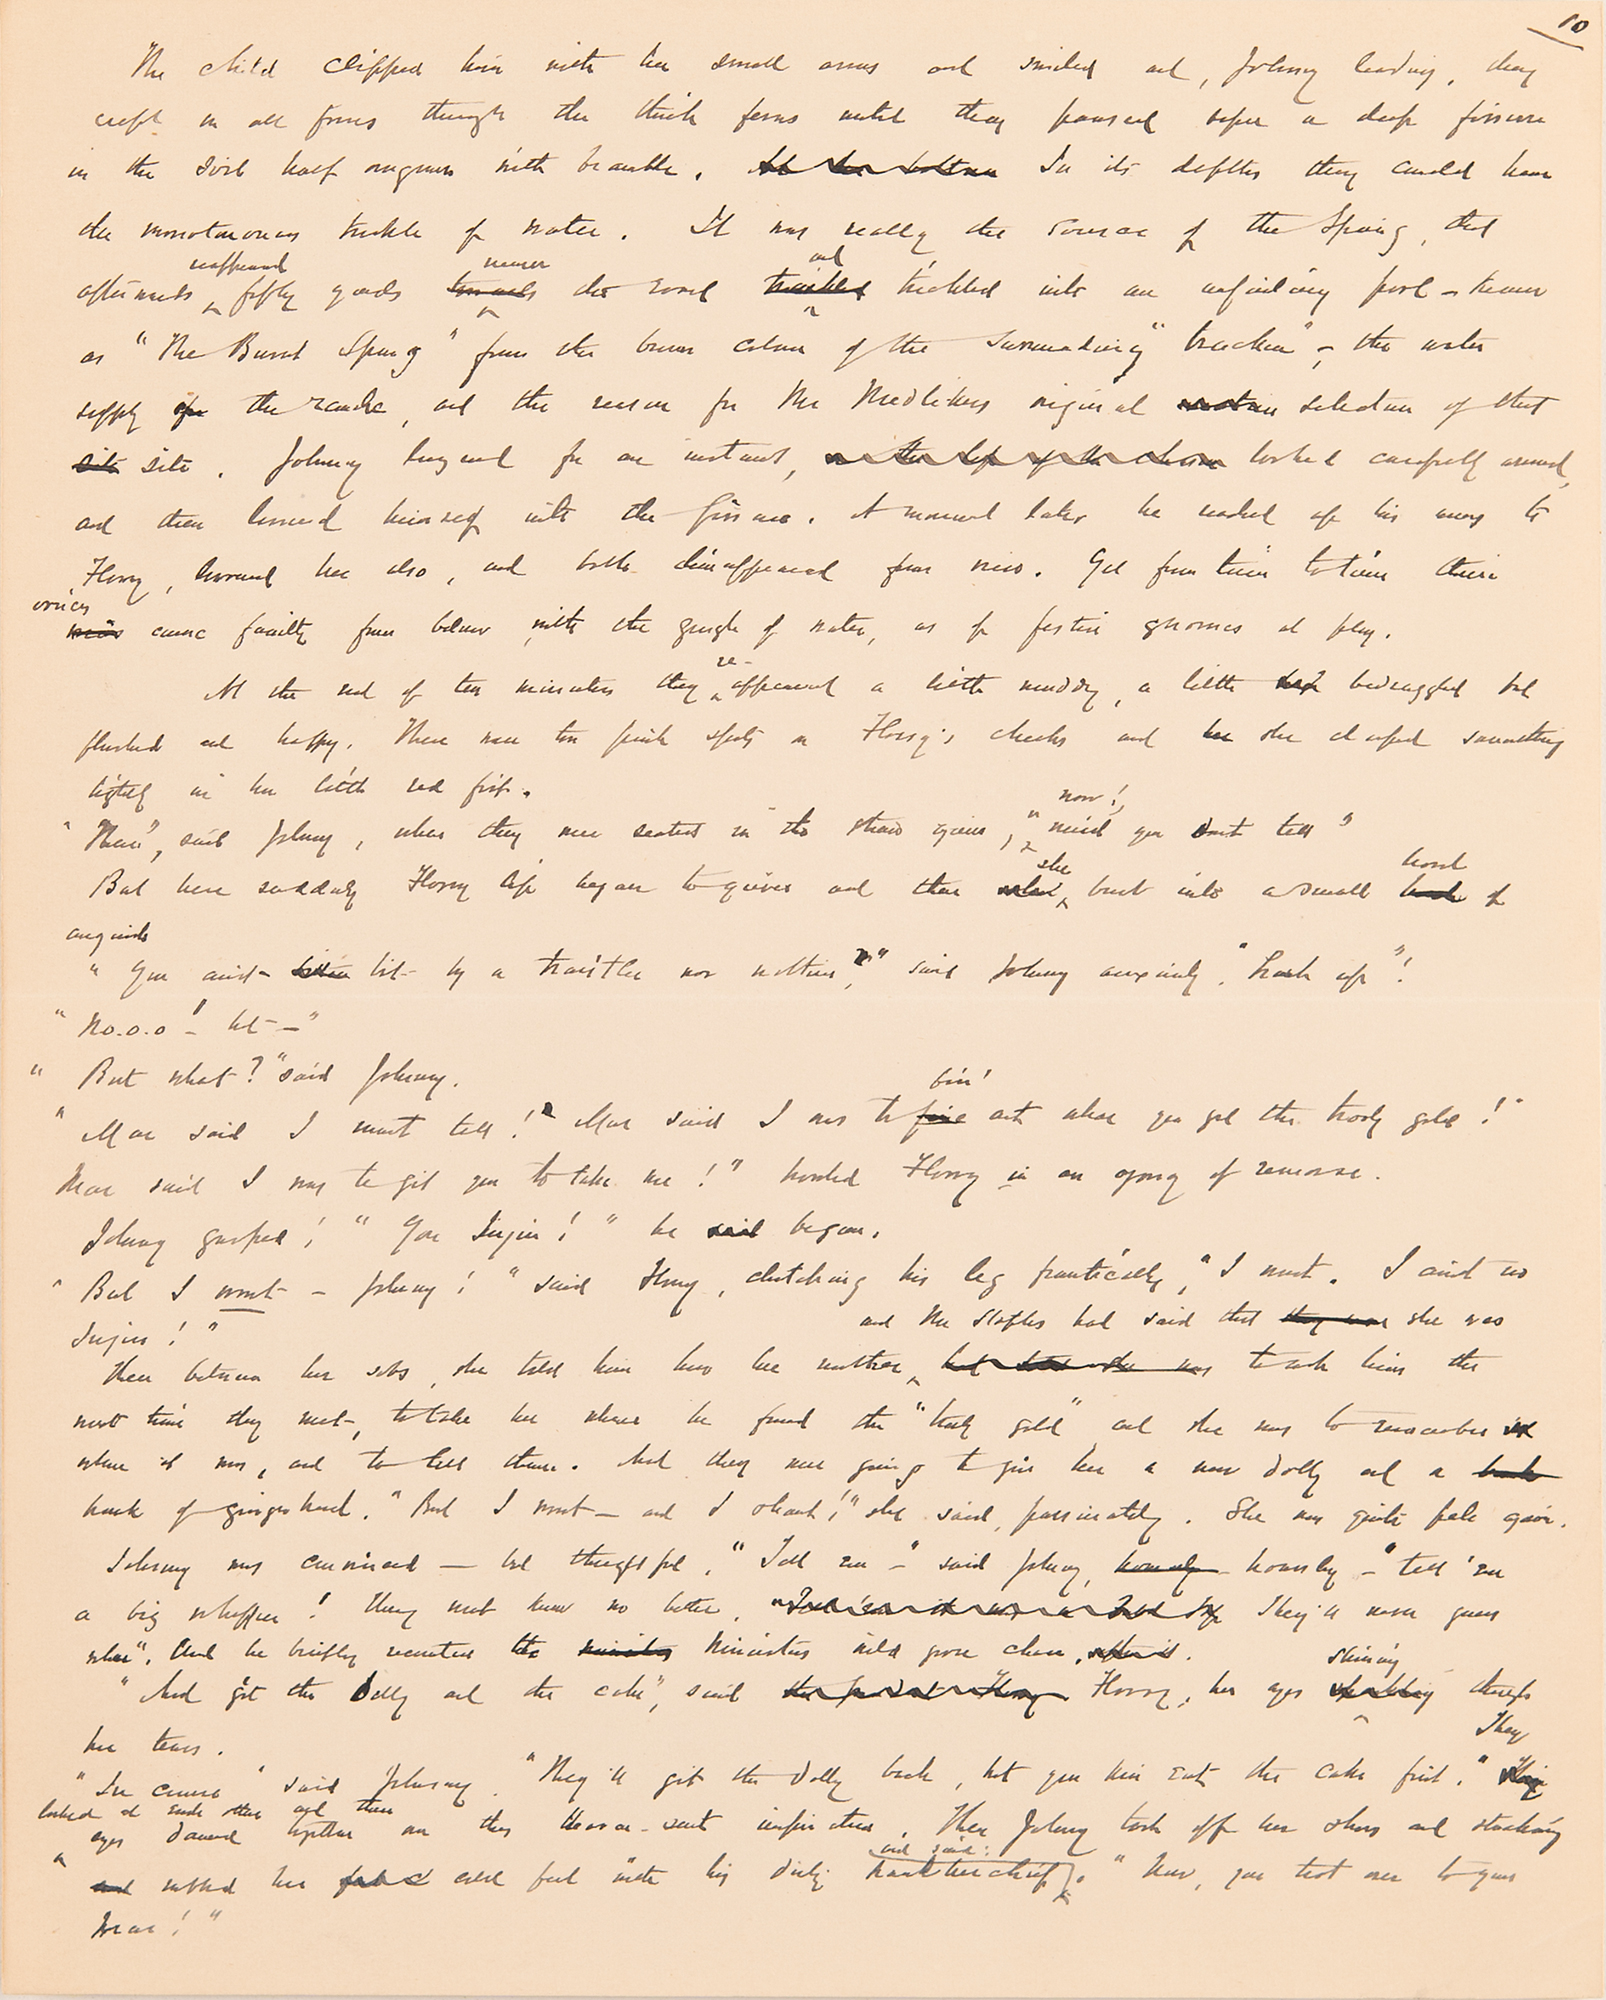 10
The child clipped him with her small arms and smiled and, Johnny leading, they
crept on all fours through the thick ferns until they paused before a deep fissure
in the soil half overgrown with bramble. In its depths they could hear
the monotonous trickle of water. It was really the source of the Spring, that
afterwards reappeared fifty yards nearer the road and trickled into an unfailing pool – known
as "The Burnt Spring" from the brown colour of the surrounding "bracken" – the water
supply of the ranche, and the reason for Mr Medlikers original selection of that
site site. Johnny lingered for an instant, on the lip of the chasm looked carefully around,
and then lowered himself into the fissure. A moment later he reached up his arms to
Florry, lowered her also, and both disappeared from view. Yet from time to time their
voices came faintly from below with the gurgle of water, as of festive gnomes at play.
At the end of ten minutes they re-appeared a little muddy, a little bedraggled but
flushed and happy. There were two pink spots on Florry's cheeks and she clasped something
tightly in her little red fist.
"There", said Johnny, when they were seated in the straw again, "now! mind you don't tell"
But here suddenly Florry lip began to quiver and then she burst into a small howl of
anguish
"You aint bit by a trantler nor nothin?" said Johnny anxiously. "Hush up"!
"No.o.o! – but – "
"But what?" said Johnny.
"Mar said I must tell! Mar said I was to fin' out where you get the truly gold!"
Mar said I was to git you to take me!" howled Florry in an agony of remorse.
Johnny gasped! "You Injin!" he said began.
"But I wont – Johnny!" said Florry, clutching his leg frantically, "I wont. I aint no
Injin!"
and Mr Staples had said that they were she was
Then between her sobs, she told him how her mother to ask him the
next time they met, to take her where he found the "truly gold" and she was to remember
where it was, and to tell them. And they were going to give her a new dolly and a
hunk of gingerbread. "But I wont – and I shant!" she said, passionately. She was quite pale again.
Johnny was convinced – but thoughtful. "Tell em –" said Johnny, hoarsely – "tell 'em
a big whopper! They wont know no better. They'll never guess
where". And he briefly recounted the Ministers wild goose chase.
"And git the Dolly and the cake", said Florry, her eyes shining through
her tears.
"In course" said Johnny. "They'll git the dolly back, but you kin eat the cake first." They
looked at each other and their
eyes danced together on this Heaven-sent inspiration. Then Johnny took off her shoes and stockings
and rubbed her cold feet with his dirty handkerchief, and said: "Now, you trot over to your
Mar!"